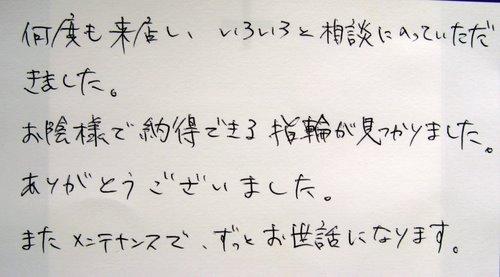 何度も来店し、いろいろと相談にのっていただ
きました。
お陰様で納得できる指輪が見つかりました。
ありがとうございました。
またメンテナンスで、ずっとお世話になります。